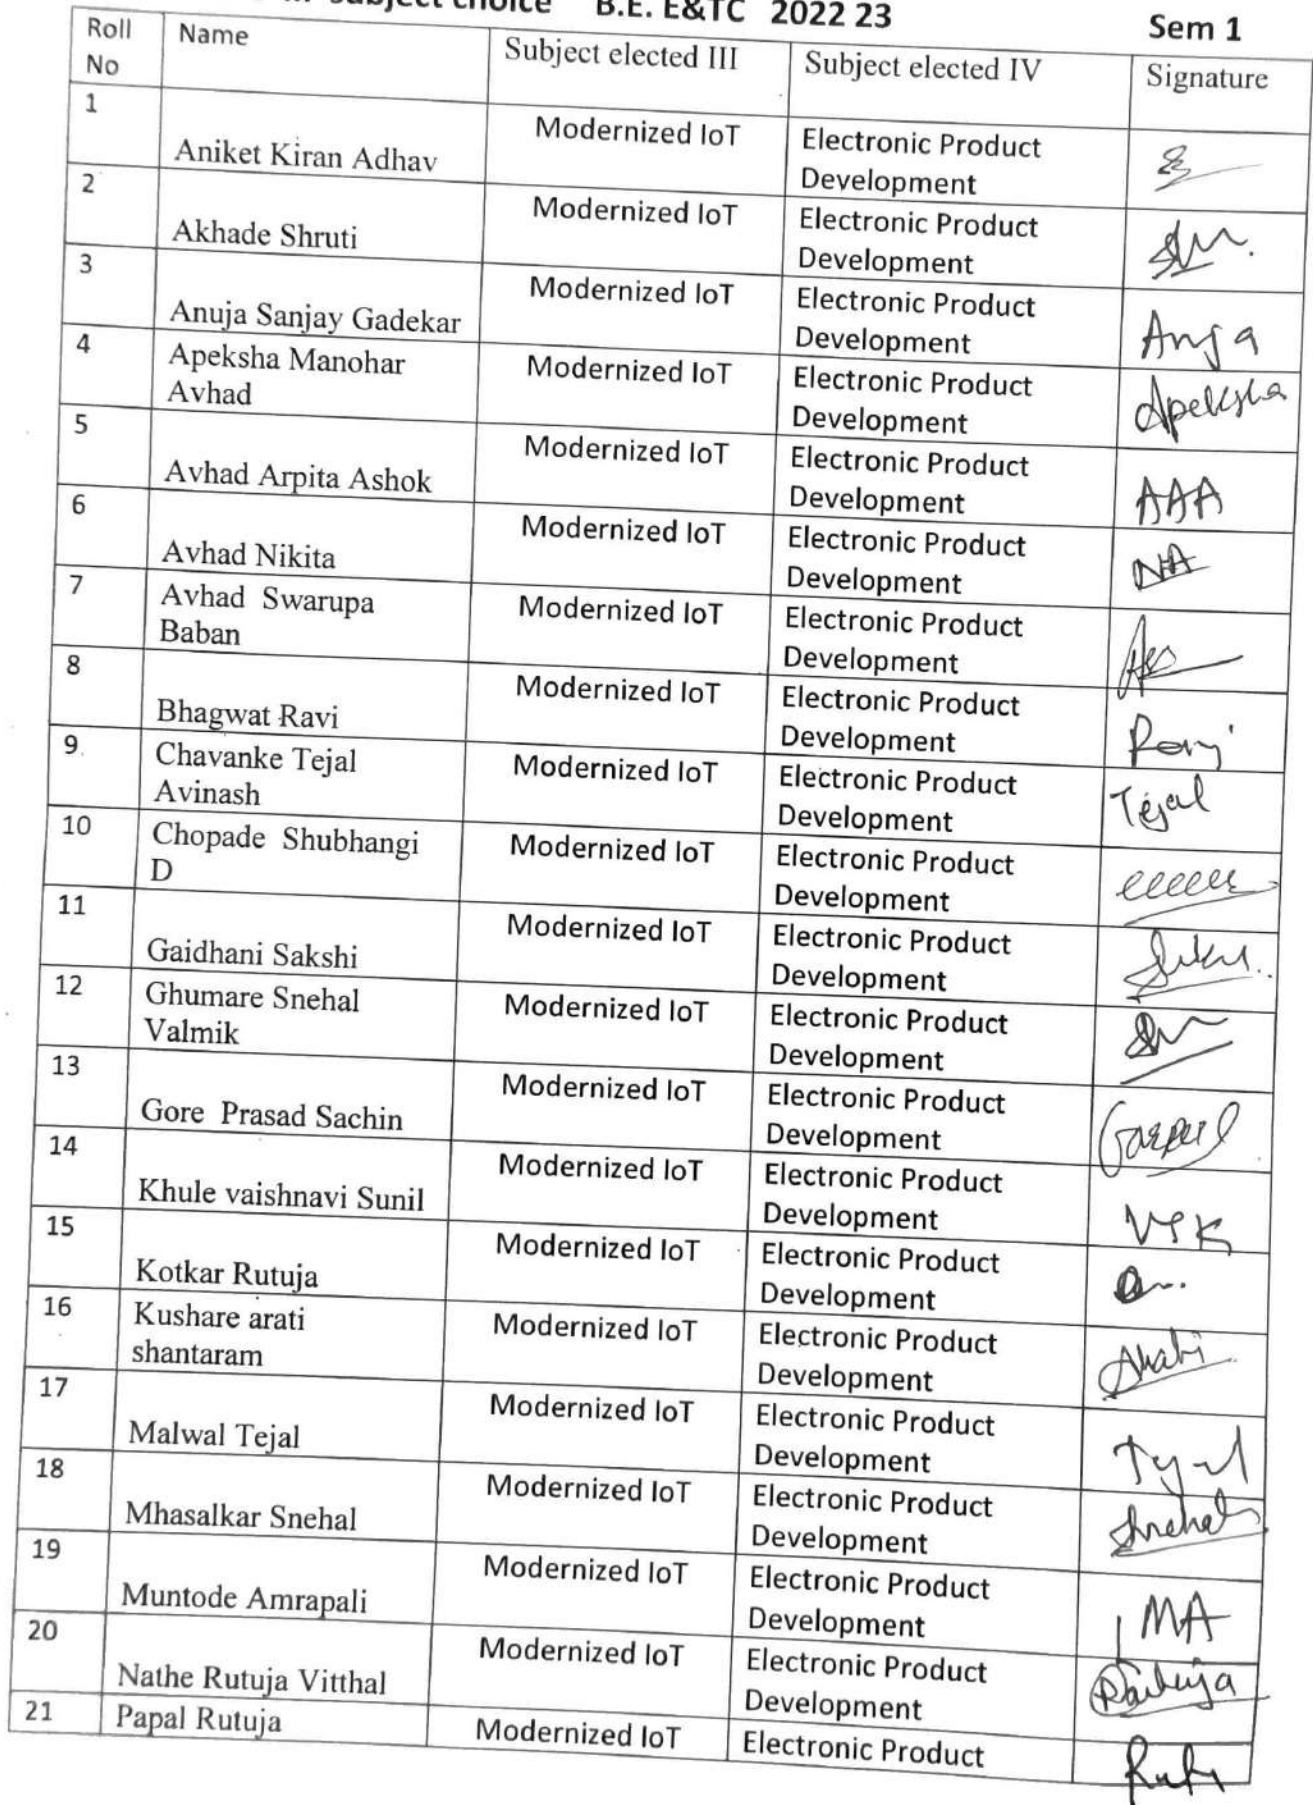 subject choice B.E. E&TC 2022 23 Sem 1
Roll No Name Subject elected III Subject elected IV Signature
1 Aniket Kiran Adhav Modernized IoT Electronic Product Development
2 Akhade Shruti Modernized IoT Electronic Product Development
3 Anuja Sanjay Gadekar Modernized IoT Electronic Product Development
4 Apeksha Manohar Avhad Modernized IoT Electronic Product Development Apeksha
5 Avhad Arpita Ashok Modernized IoT Electronic Product Development AAA
6 Avhad Nikita Modernized IoT Electronic Product Development NA
7 Avhad Swarupa Baban Modernized IoT Electronic Product Development
8 Bhagwat Ravi Modernized IoT Electronic Product Development
9 Chavanke Tejal Avinash Modernized IoT Electronic Product Development Tejal
10 Chopade Shubhangi D Modernized IoT Electronic Product Development
11 Gaidhani Sakshi Modernized IoT Electronic Product Development
12 Ghumare Snehal Valmik Modernized IoT Electronic Product Development
13 Gore Prasad Sachin Modernized IoT Electronic Product Development
14 Khule vaishnavi Sunil Modernized IoT Electronic Product Development VSK
15 Kotkar Rutuja Modernized IoT Electronic Product Development
16 Kushare arati shantaram Modernized IoT Electronic Product Development
17 Malwal Tejal Modernized IoT Electronic Product Development
18 Mhasalkar Snehal Modernized IoT Electronic Product Development Snehal
19 Muntode Amrapali Modernized IoT Electronic Product Development MA
20 Nathe Rutuja Vitthal Modernized IoT Electronic Product Development Rutuja
21 Papal Rutuja Modernized IoT Electronic Product